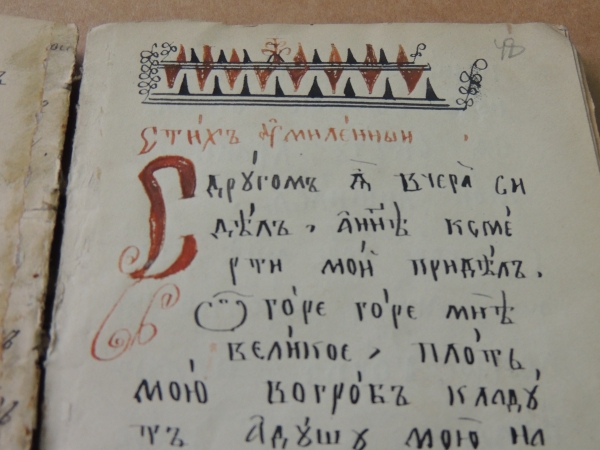 Сти́хъ ѹ҆миле́нныи
Сдру́гомъ ѧ҆ вчера̀ си
дѣ́лъ, а҆ннѣ ксме́
рти мо́й придѣ́лъ.
Ѽ го́ре го́ре мнѣ
вели́кое, пло́ть
мою̀ вогро́бъ кладу́
тъ аду́шу мою̀ на